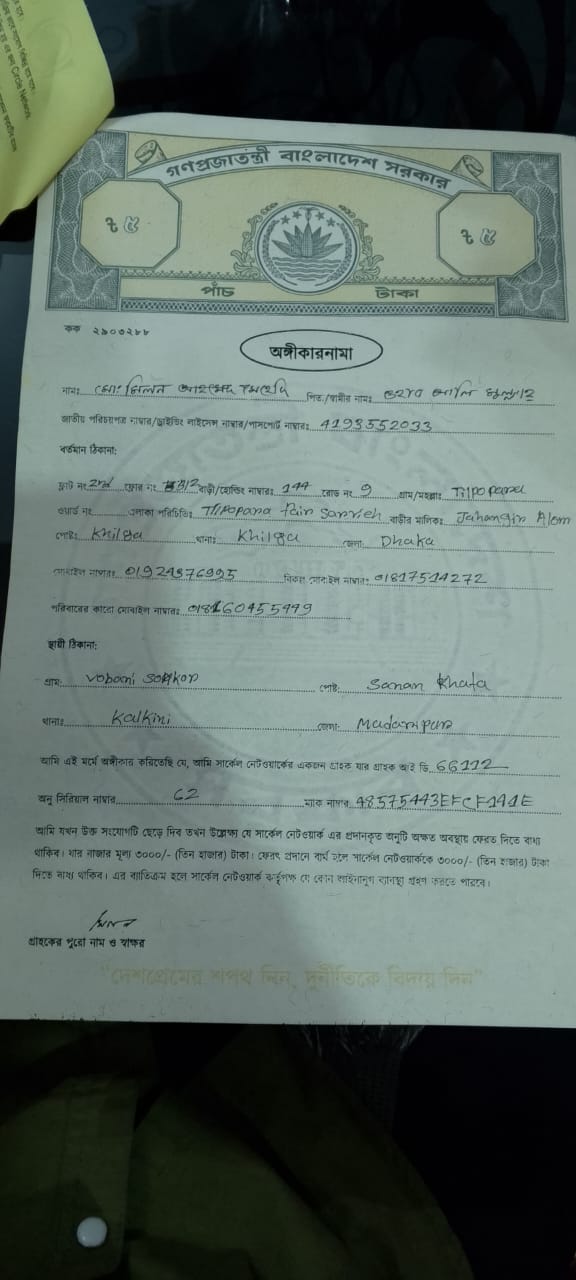 Circle Network
গণপ্রজাতন্ত্রী বাংলাদেশ সরকার
৳ ৫ ৳ ৫
পাঁচ টাকা
কক ২৯০৩২৮৮
অঙ্গীকারনামা
নামঃ মোঃ মিলন আহমেদ পিতা/স্বামীর নামঃ
জাতীয় পরিচয়পত্র নাম্বার/ড্রাইভিং লাইসেন্স নাম্বার/পাসপোর্ট নাম্বারঃ 4193552033
বর্তমান ঠিকানা:
ফ্লাট নং 2nd ফ্লোর নং বাড়ী/হোল্ডিং নাম্বারঃ 144 রোড নং 9 গ্রাম/মহল্লাঃ Tilpopara
ওয়ার্ড নং এলাকা পরিচিতিঃ Tilpopara বাড়ীর মালিকঃ Jahangir Alom
পোষ্টঃ Khilga থানাঃ Khilga জেলাঃ Dhaka
মোবাইল নাম্বারঃ 01924376995 বিকল্প মোবাইল নাম্বারঃ 01817514272
পরিবারের কারো মোবাইল নাম্বারঃ
স্থায়ী ঠিকানা:
গ্রামঃ Vobani পোষ্টঃ Khata
থানাঃ Kalkini জেলাঃ Madaripur
আমি এই মর্মে অঙ্গীকার করিতেছি যে, আমি সার্কেল নেটওয়ার্কের একজন গ্রাহক যার গ্রাহক আই ডি 66112
অনু সিরিয়াল নাম্বার 62 ম্যাক নাম্বার 48575443EFCF141E
আমি যখন উক্ত সংযোগটি ছেড়ে দিব তখন উল্লেক্ষ্য যে সার্কেল নেটওয়ার্ক এর প্রদানকৃত অনুটি অক্ষত অবস্থায় ফেরত দিতে বাধ্য
থাকিব। যার বাজার মূল্য ৩০০০/- (তিন হাজার) টাকা। ফেরৎ প্রদানে ব্যর্থ হলে সার্কেল নেটওয়ার্ককে ৩০০০/- (তিন হাজার) টাকা
দিতে বাধ্য থাকিব। এর ব্যতিক্রম হলে সার্কেল নেটওয়ার্ক কর্তৃপক্ষ যে কোন আইনানুগ ব্যবস্থা গ্রহণ করতে পারবে।
মিলন
গ্রাহকের পুরো নাম ও স্বাক্ষর
“দেশপ্রেমের শপথ নিন, দুর্নীতিকে বিদায় দিন”